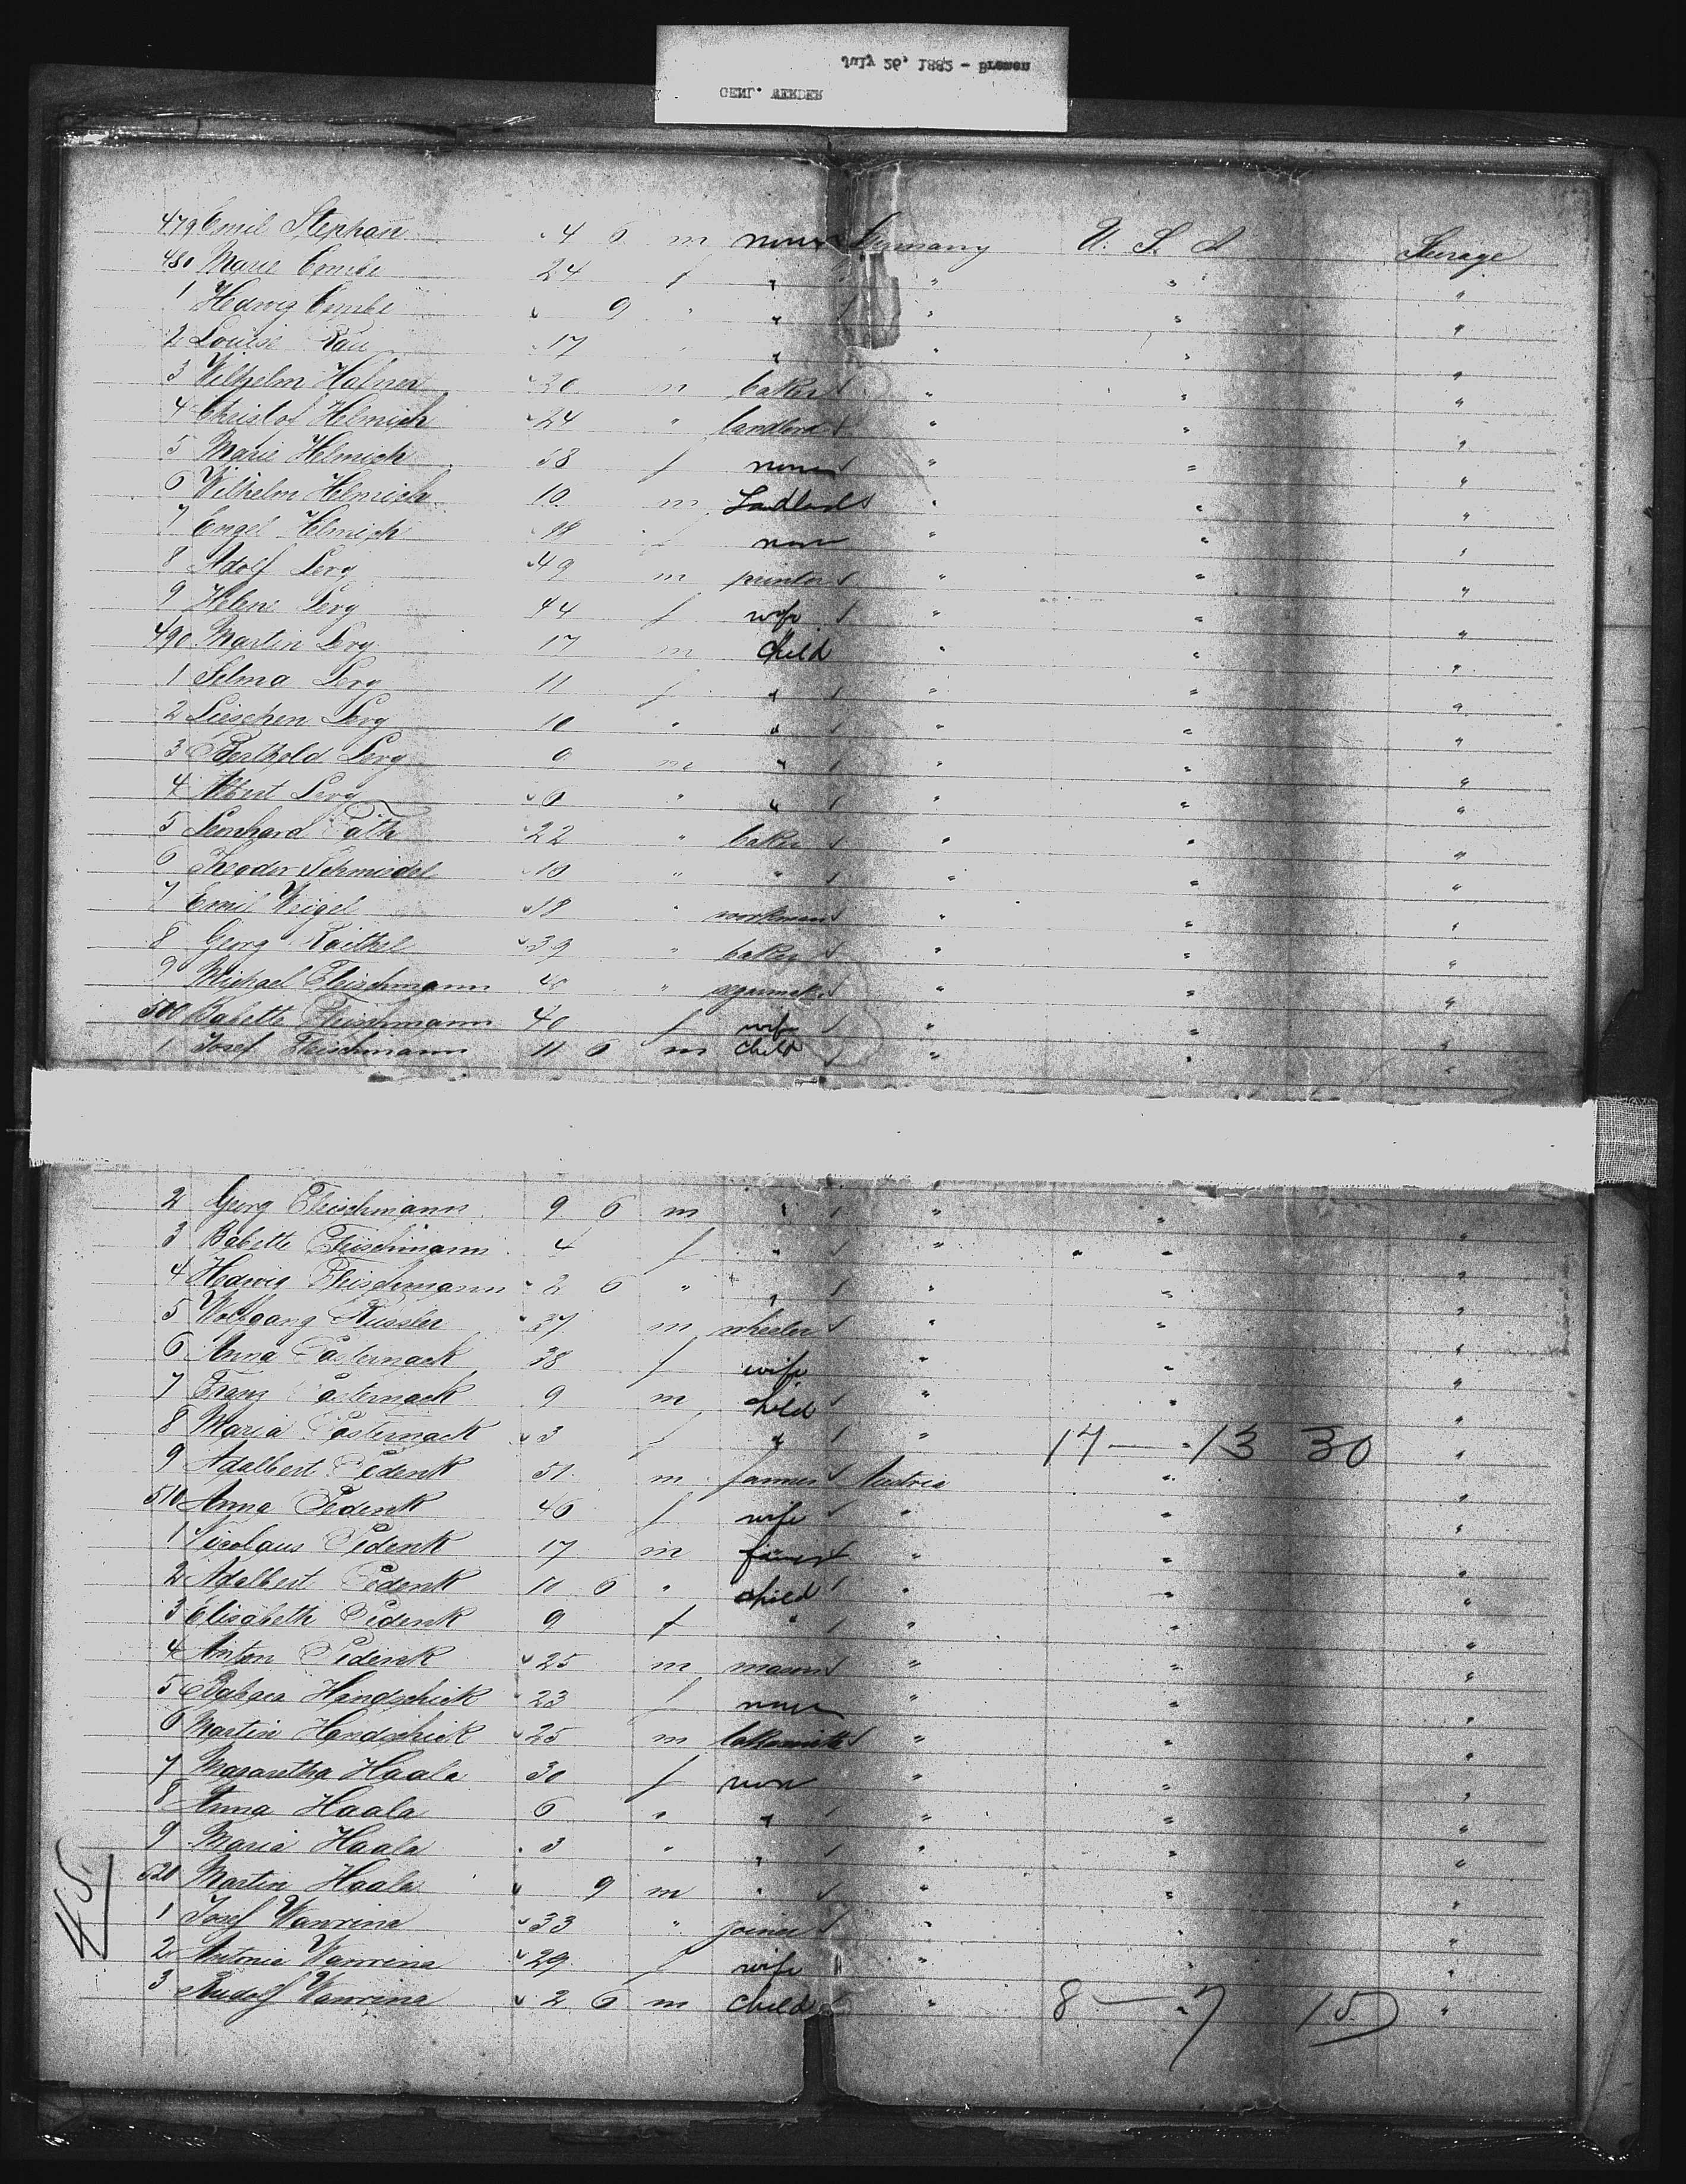 July 26, 1882 - Bremen
GENL. WERDER
479 Emil Stephan 4 6 m none Germany U. S. A Steerage
480 Marie Combe 24 f " " " "
1 Hedwig Combe 9 " " " " "
2 Louise Rau 17 " " " "
3 Wilhelm Hafner 20 m baker " " "
4 Christof Helmich 24 " landlord " " "
5 Marie Helmich 58 f none " " "
6 Wilhelm Helmich 10 m " " "
7 Engel Helmich f none " " "
8 Adolf Levy 49 m printer " " "
9 Helene Levy 44 f wife " " "
490 Martin Levy 17 m child " " "
1 Selma Levy 11 f " " " "
2 Lieschen Levy 10 " " " " "
3 Berthold Levy 9 m " " " "
4 Albert Levy 6 " " " " "
5 Lenhard Path 22 " baker " " "
6 Theodor Schmiedel " " " " "
7 Emil Weigel 18 " workman " " "
8 Georg Raithel 39 " baker " " "
9 Michael Fleischmann 40 " " " "
500 Babette Fleischmann 40 f wife " " "
1 Josef Fleischmann 11 6 m child " " "
2 Georg Fleischmann 9 6 m " " " "
3 Babette Fleischmann 4 f " " " "
4 Hedwig Fleischmann 2 6 " " " " "
5 Wolfgang 37 m wheeler " " "
6 Anna Pasternack 38 f wife " " "
7 Franz Pasternack 9 m child " " "
8 Maria Pasternack 3 f " " 17 — 13 30 "
9 Adalbert Pidenk 51 m farmer Austria " "
510 Anna Pidenk 46 f wife " " "
1 Nicolaus Pidenk 17 m farmer " " "
2 Adalbert Pidenk 10 6 " child " " "
3 Elisabeth Pidenk 9 f " " " "
4 Anton Pidenk 25 m mason " " "
5 Handschick 23 f none " " "
6 Martin Handschick 25 m " " "
7 Magaretha Haala 30 f none " " "
8 Anna Haala 6 " " " " "
9 Maria Haala 3 " " " " "
520 Martin Haala 9 m " " " "
1 Josef Wanrina 33 " joiner " " "
2 Antonia Wanrina 29 f wife " " "
3 Rudolf Wanrina 2 6 m child " 8 — 7 15 "
45